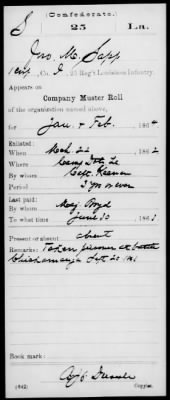 (Confederate.)
S
25
La.
Jno. M. Sapp
Co. I, 25 Reg't Louisiana Infantry.
Appears on
Company Muster Roll
of the organization named above,
for Jan. & Feb., 1864
Enlisted:
When Mch 22, 1862
Where
By whom Capt.
Period 3 yrs or war
Last paid:
By whom Maj. Boyd
To what time June 30, 1863
Present or absent absent
Remarks: Taken prisoner at battle
Chickamauga Sept 20 1863
Book mark:
(642)
Copyist.